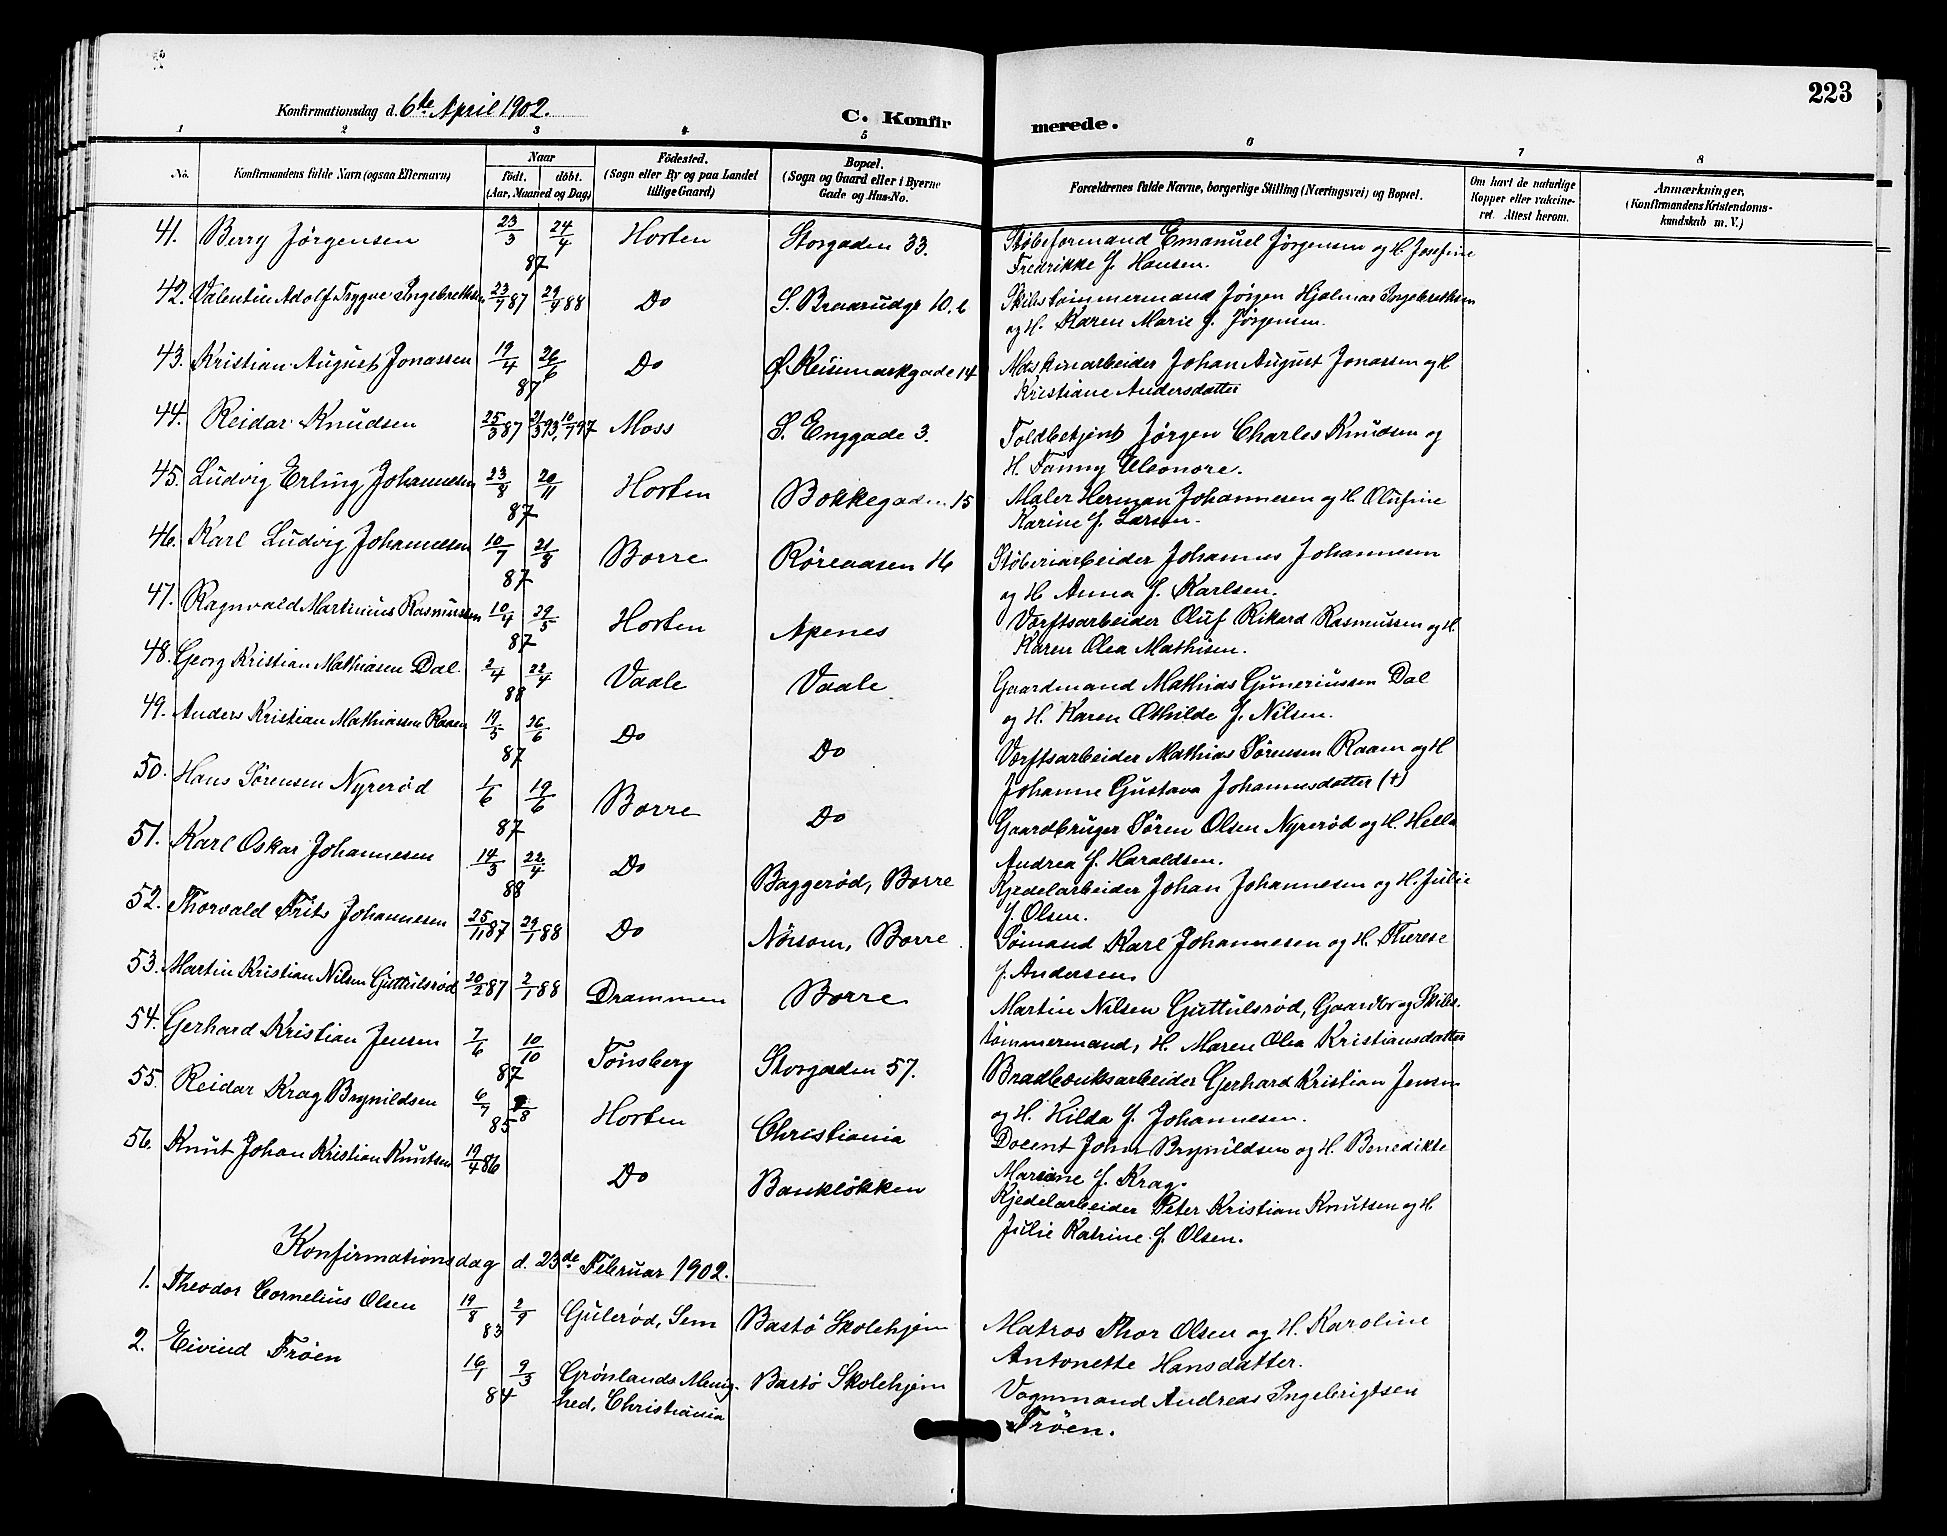 223
Konfirmationsdag d. 6te April 1902.
C. Konfirmerede.
1 2 3 4 5 6 7 8
No. Konfirmandens fulde Navn (ogsaa Efternavn) Naar født. døbt. (Aar, Maaned og Dag) Fødested. (Sogn eller By og paa Landet tillige Gaard) Bopæl. (Sogn og Gaard eller i Byerne Gade og Hus-No. Forældrenes fulde Navne, borgerlige Stilling (Næringsvei) og Bopæl. Om havt de naturlige Kopper eller vaccineret. Attest herom. Anmærkninger. (Konfirmandens Kristendomskundskab m. V.)
41. Berry Jørgensen 23/3 24/4 87 Horten Storgaden 33. Støbeformand Emanuel Jørgensen og H. Josefine
Fredrikke f. Hansen.
42. Valentin Adolf Trygve Ingebrethsen 23/9 87 29/4 88 Do S. Braarudgt 10. b Skibstømmermand Jørgen Hjalmar Ingebrethsen
og H. Karen Marie f. Jørgensen.
43. Kristian August Jonassen 19/4 26/6 87 Do Ø. Keisemarkgade 14 Maskinarbeider Johan August Jonassen og H
Kristiane Andersdatter
44. Reidar Knudsen 25/3 87 21/3 93, 10/7 97 Moss S. Enggade 3. Toldbetjent Jørgen Charles Knudsen og
H. Fanny Eleonore.
45. Ludvig Erling Johannesen 23/8 20/11 87 Horten Bokkegaden 15 Maler Herman Johannesen og H. Olufine
Karine f. Larsen.
46. Karl Ludvig Johannesen 10/7 21/8 87 Borre Røreaasen 16 Støberiarbeider Johannes Johannesen
og H. Anna f. Karlsen.
47. Ragnvald Martinius Rasmussen 10/4 29/5 87 Horten Apenes Værftsarbeider Oluf Rikard Rasmussen og H.
Karen Olea Mathisen.
48. Georg Kristian Mathiasen Dal 2/4 22/4 88 Vaale Vaale Gaardmand Mathias Guneriussen Dal
og H. Karen Othilde f. Nilsen.
49. Anders Kristian Mathiassen Raaen 19/5 26/6 87 Do Do Værftsarbeider Mathias Sørensen Raaen og H
Johanne Gustava Johannesdatter (†)
50. Hans Sørensen Nyrerød 1/6 19/6 87 Borre Do Gaardbruger Søren Olsen Nyrerød og H. Hella
Andrea f. Haraldsen.
51. Karl Oskar Johannesen 14/3 22/4 88 Do Baggerød, Borre Kjedelarbeider Johan Johannesen og H. Julie
f. Olsen.
52. Thorvald Frits Johannesen 25/11 87 29/1 88 Do Nørsom, Borre Sømand Karl Johannesen og H. Therese
f. Andersen.
53. Martin Kristian Nilsen Guttulsrød 20/2 87 2/1 88 Drammen Borre Martin Nilsen Guttulsrød, Gaardbr og Skibs-
tømmermand, H. Maren Olea Kristiansdatter
54. Gerhard Kristian Jensen 7/6 10/10 87 Tønsberg Storgaden 57. Bradbænksarbeider Gerhard Kristian Jensen
og H. Hilda f. Johannesen.
55. Reidar Krag Brynildsen 6/7 9/8 85 Horten Christiania Docent John Brynildsen og H. Benedikte
Mariane f. Krag.
56. Knut Johan Kristian Knutsen 19/4 86 Do Bankløkken Kjedelarbeider Peter Kristian Knutsen og H
Julie Katrine f. Olsen.
Konfirmationsdag d. 23de Februar 1902.
1. Theodor Cornelius Olsen 19/8 2/9 83 Gulerød, Sem Bastø Skolehjem Matros Thor Olsen og H. Karoline
Antonette Hansdatter.
2. Eivind Frøen 16/1 9/3 84 Grønlands Menig-
hed, Christiania Bastø Skolehjem Vognmand Andreas Ingebrigtsen
Frøen.